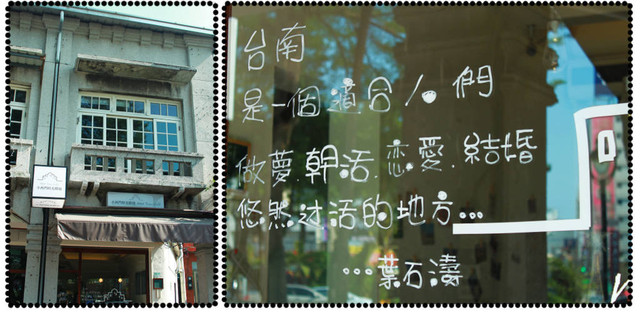 台南
是一個適合人們
做夢.幹活.恋愛.結婚
悠然过活的地方...
...葉石濤